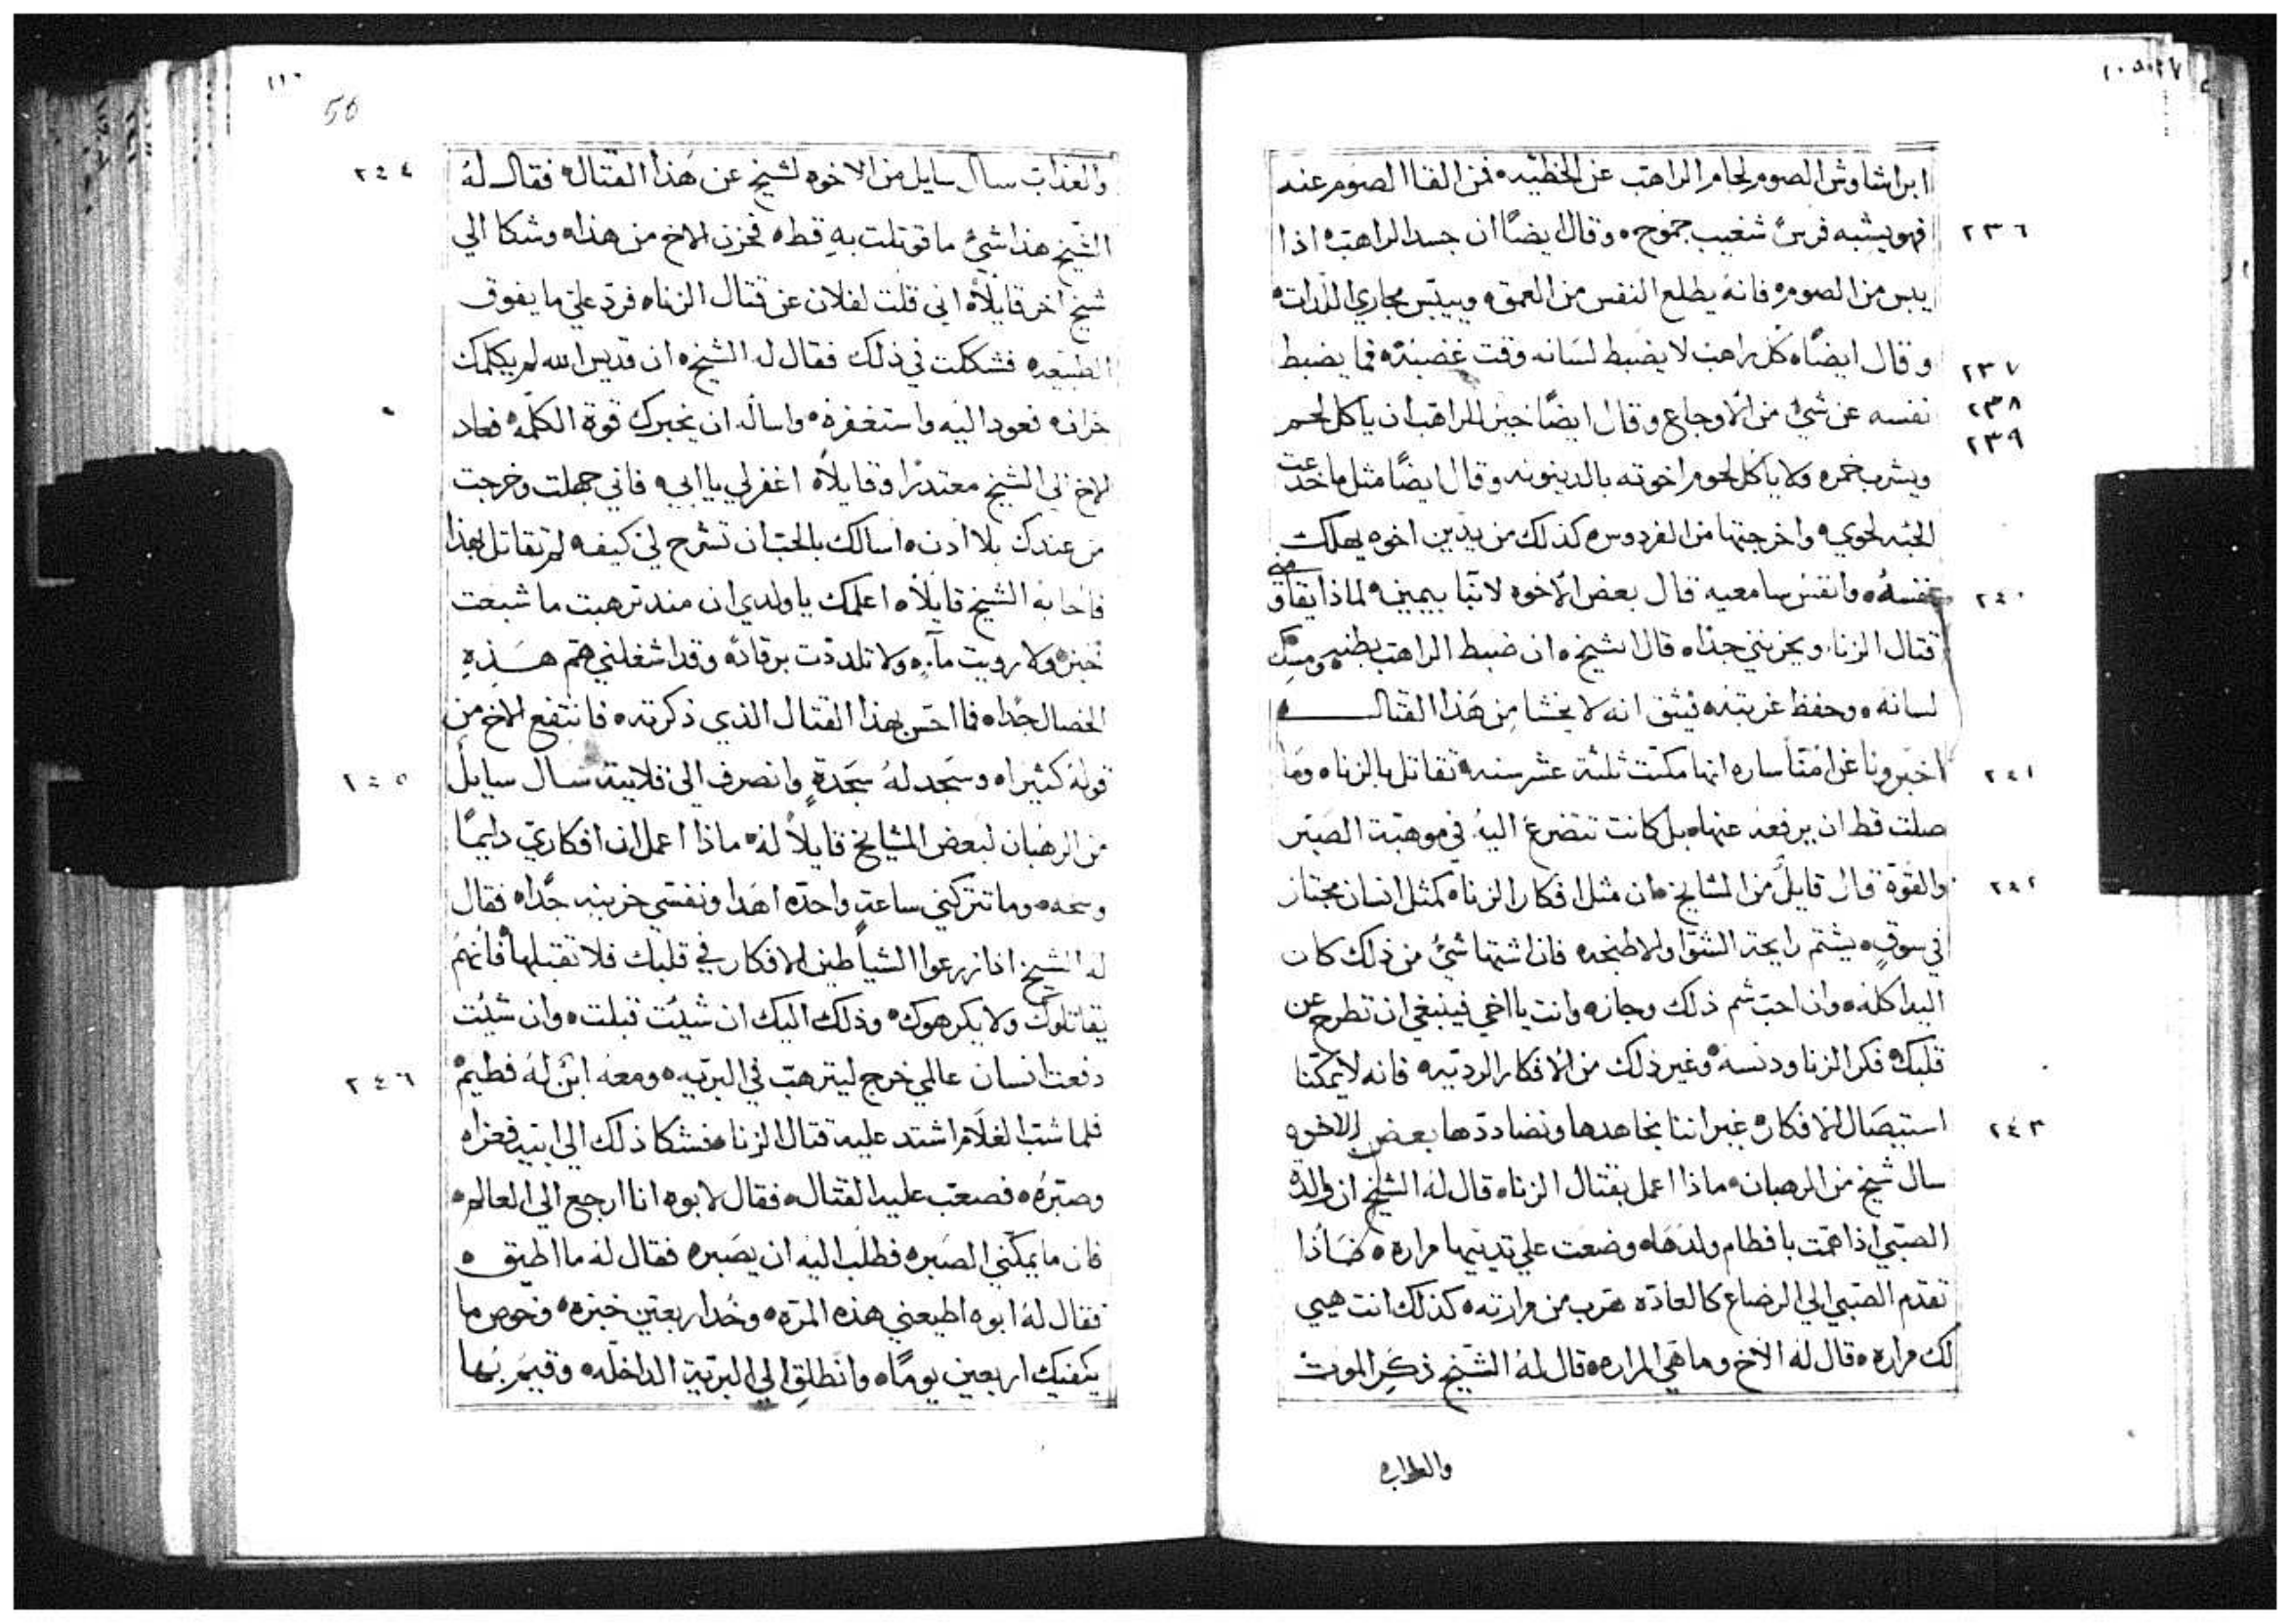 ابراشاوش الصوم لجام الراهب عن الخطيه ٥ فمن القا الصوم عنه
٢٣٦
فهو يشبه فرسً شغيب جموح ٥ وقال ايضًا ان جسد الراهب ٥ اذا
يبس من الصوم ٥ فانه يطلع النفس من العمق ٥ وييبّس مجاري اللذات ٥
٢٣٧
وقال ايضًا ٥ كل راهب لا يضبط لسانه وقت غضبه ٥ فما يضبط
٢٣٨
نفسه عن شيً من الاوجاع وقال ايضًا خير للراهب ان ياكل لحم
٢٣٩
ويشرب خمر ٥ ولا ياكل لحوم اخوته بالدينونه وقال ايضًا مثل ما خدعت
الحيّه لحوي ٥ واخرجتها من الفردوس ٥ كذلك من يدين اخوه يهلك
٢٤٠
نفسهُ ٥ وانفس سامعيه قال بعض الاخوه لانبا بيمين ٥ لماذا يقاتلني
قتال الزنا ٥ ويحزنني جدًا ٥ قال الشيخ ٥ ان ضبط الراهب بطنه ومسك
لسانه ٥ وحفظ غربته ٥ يثق انه لا يخشا من هذا القتال ٥
٢٤١
اخبرونا عن امنا ساره انها مكتت ثلثة عشر سنه ٥ تقاتل بالزنا ٥ وما
صلت قط ان يرفعه عنها ٥ بل كانت تتضرع اليه في موهبة الصبر
٢٤٢
والقوة قال قايلٌ من المشايخ ٥ ان مثل افكار الزنا ٥ كمثل انسان مجتاز
في سوقٍ ٥ يشتم رايحة الشوا والاطبخه ٥ فان اشتها شيً من ذلك كان
اليه اكله ٥ وان احب شم ذلك وجاز ٥ وانت يا اخي فينبغي ان تطرح عن
قلبك ٥ فكر الزنا ودنسه ٥ وغير ذلك من الافكار الرديه ٥ فانه لا يمكننا
٢٤٣
استيصال الافكار ٥ غير اننا نجاهدها ونضاددها بعض الاخوه
سال شيخ من الرهبان ٥ ماذا اعمل بقتال الزنا ٥ قال له الشيخ ان والدة
الصبي اذا همت بافطام ولدها ٥ وضعت علي تدييها مراره ٥ فاذا
تقدم الصبي الي الرضاع كالعاده هرب من مرارته ٥ كذلك انت هيي
لك مراره ٥ قال له الاخ وما هي المراره ٥ قال له الشيخ ذكر الموت
والعذاب ٥
١١٦
56
٢٤٤
والعذاب سال سايل من الاخوه لشيخ عن هذا القتال ٥ فقال له
الشيخ هذا شيً ما قوتلت به قط ٥ فحزن الاخ من هذا ٥ وشكا الي
شيخ اخر قايلاً ٥ اني قلت لفلان عن قتال الزنا ٥ فرد علي ما يفوق
الطبيعه ٥ فشككت في ذلك فقال له الشيخ ٥ ان قديس الله لم يكلمك
خرافه فعود اليه واستغفره ٥ واساله ان يخبرك قوة الكلمه ٥ فعاد
الاخ الي الشيخ معتذرًا وقايلاً ٥ اغفرلي يا ابي ٥ فاني جهلت وخرجت
من عندك بلا اذن ٥ اسالك بالحب ان تشرح لي كيف ٥ لم تقاتل بهذا
فاجابه الشيخ قايلاً ٥ اعلمك يا ولدي ان مند ترهبت ما شبعت
خبز ٥ ولا رويت مآء ٥ ولا تلددت برقاد ٥ وقد اشغلني هم هذه
الخصال جدًا ٥ فما احس بهذا القتال الذي ذكرته ٥ فانتفع الاخ من
٢٤٥
قوله كثيرا ٥ وسجد له سجدةٍ وانصرف الي قلايته سال سايل
من الرهبان لبعض المشايخ قايلاً له ٥ ماذا اعمل ان افكاري دايمًا
وسخه ٥ وما تتركني ساعت واحده اهدا ونفسي حزينه جدًا ٥ فقال
له الشيخ اذا زرعوا الشياطين الافكار في قلبك فلا تقبلها فانهم
يقاتلوك ولا يكرهوك ٥ وذلك اليك ان شيت قبلت ٥ وان شيت
٢٤٦
دفعت انسان عالمي خرج ليترهب في البريه ٥ ومعه ابن له فطيم ٥
فلما شب الغلام اشتد عليه قتال الزنا ٥ فشكا ذلك الي ابيه فعزاه
وصبّره ٥ فصعب عليه القتال ٥ فقال لابوه انا ارجع الي العالم ٥
فان ما يمكنني الصبر ٥ فطلب اليه ان يصبر ٥ فقال له ما اطيق ٥
فقال له ابوه اطيعني هذه المرة ٥ وخُد اربعين خبزه ٥ وخوص ما
يكفيك اربعين يومًا ٥ وانطلق الي البرية الداخله ٥ وقيم بها